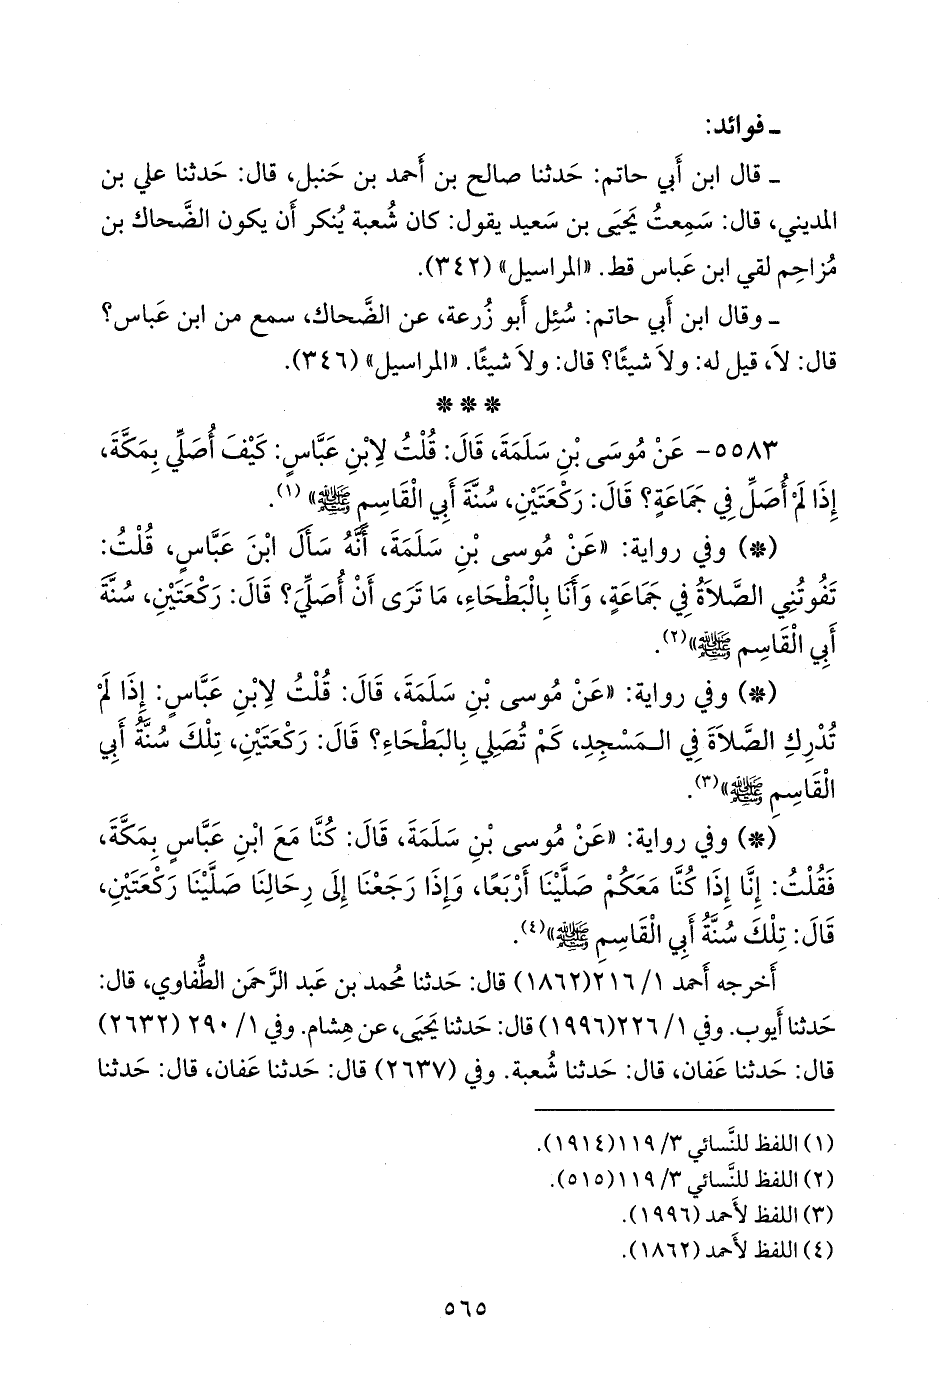 ـ فوائد:
ـ قال ابن أَبي حاتم: حَدثنا صالح بن أَحمد بن حَنبل، قال: حَدثنا علي بن
المديني، قال: سَمِعتُ يَحيَى بن سَعيد يقول: كان شُعبة يُنكر أن يكون الضَّحاك بن
مُزاحِم لقي ابن عَباس قط. «المراسيل» (٣٤٢).
ـ وقال ابن أَبي حاتم: سُئِل أَبو زُرعة، عن الضَّحاك، سمع من ابن عَباس؟
قال: لاَ، قيل له: ولاَ شيئًا؟ قال: ولاَ شيئًا. «المراسيل» (٣٤٦).
* * *
٥٥٨٣- عَنْ مُوسَى بْنِ سَلَمَةَ، قَالَ: قُلْتُ لِابْنِ عَبَّاسٍ: كَيْفَ أُصَلِّي بِمَكَّةَ،
إِذَا لَمْ أُصَلِّ فِي جَمَاعَةٍ؟ قَالَ: رَكْعَتَيْنِ، سُنَّةَ أَبِي الْقَاسِمِ ﷺ» (١).
(*) وفي رواية: «عَنْ مُوسى بْنِ سَلَمَةَ، أَنَّهُ سَأَلَ ابْنَ عَبَّاسٍ، قُلْتُ:
تَفُوتُنِي الصَّلاَةُ فِي جَمَاعَةٍ، وَأَنَا بِالْبَطْحَاءِ، مَا تَرَى أَنْ أُصَلِّيَ؟ قَالَ: رَكْعَتَيْنِ، سُنَّةَ
أَبِي الْقَاسِمِ ﷺ»(٢).
(*) وفي رواية: «عَنْ مُوسى بْنِ سَلَمَةَ، قَالَ: قُلْتُ لِابْنِ عَبَّاسٍ: إِذَا لَمْ
تُدْرِكِ الصَّلاَةَ فِي الـمَسْجِدِ، كَمْ تُصَلِي بِالبَطْحَاءِ؟ قَالَ: رَكْعَتَيْنِ، تِلْكَ سُنَّةُ أَبِي
الْقَاسِمِ ﷺ»(٣).
(*) وفي رواية: «عَنْ مُوسى بْنِ سَلَمَةَ، قَالَ: كُنَّا مَعَ ابْنِ عَبَّاسٍ بِمَكَّةَ،
فَقُلْتُ: إِنَّا إِذَا كُنَّا مَعَكُمْ صَلَّيْنَا أَرْبَعًا، وَإِذَا رَجَعْنَا إِلَى رِحَالِنَا صَلَّيْنَا رَكْعَتَيْنِ،
قَالَ: تِلْكَ سُنَّةُ أَبِي الْقَاسِمِ ﷺ»(٤).
أَخرجه أَحمد ١/ ٢١٦(١٨٦٢) قال: حَدثنا مُحمد بن عَبد الرَّحمَن الطُّفاوي، قال:
حَدثنا أَيوب. وفي ١/ ٢٢٦(١٩٩٦) قال: حَدثنا يَحيَى، عن هِشام. وفي ١/ ٢٩٠ (٢٦٣٢)
قال: حَدثنا عَفان، قال: حَدثنا شُعبة. وفي (٢٦٣٧) قال: حَدثنا عَفان، قال: حَدثنا
(١) اللفظ للنَّسائي ٣/ ١١٩(١٩١٤).
(٢) اللفظ للنَّسائي ٣/ ١١٩(٥١٥).
(٣) اللفظ لأَحمد (١٩٩٦).
(٤) اللفظ لأَحمد (١٨٦٢).
٥٦٥